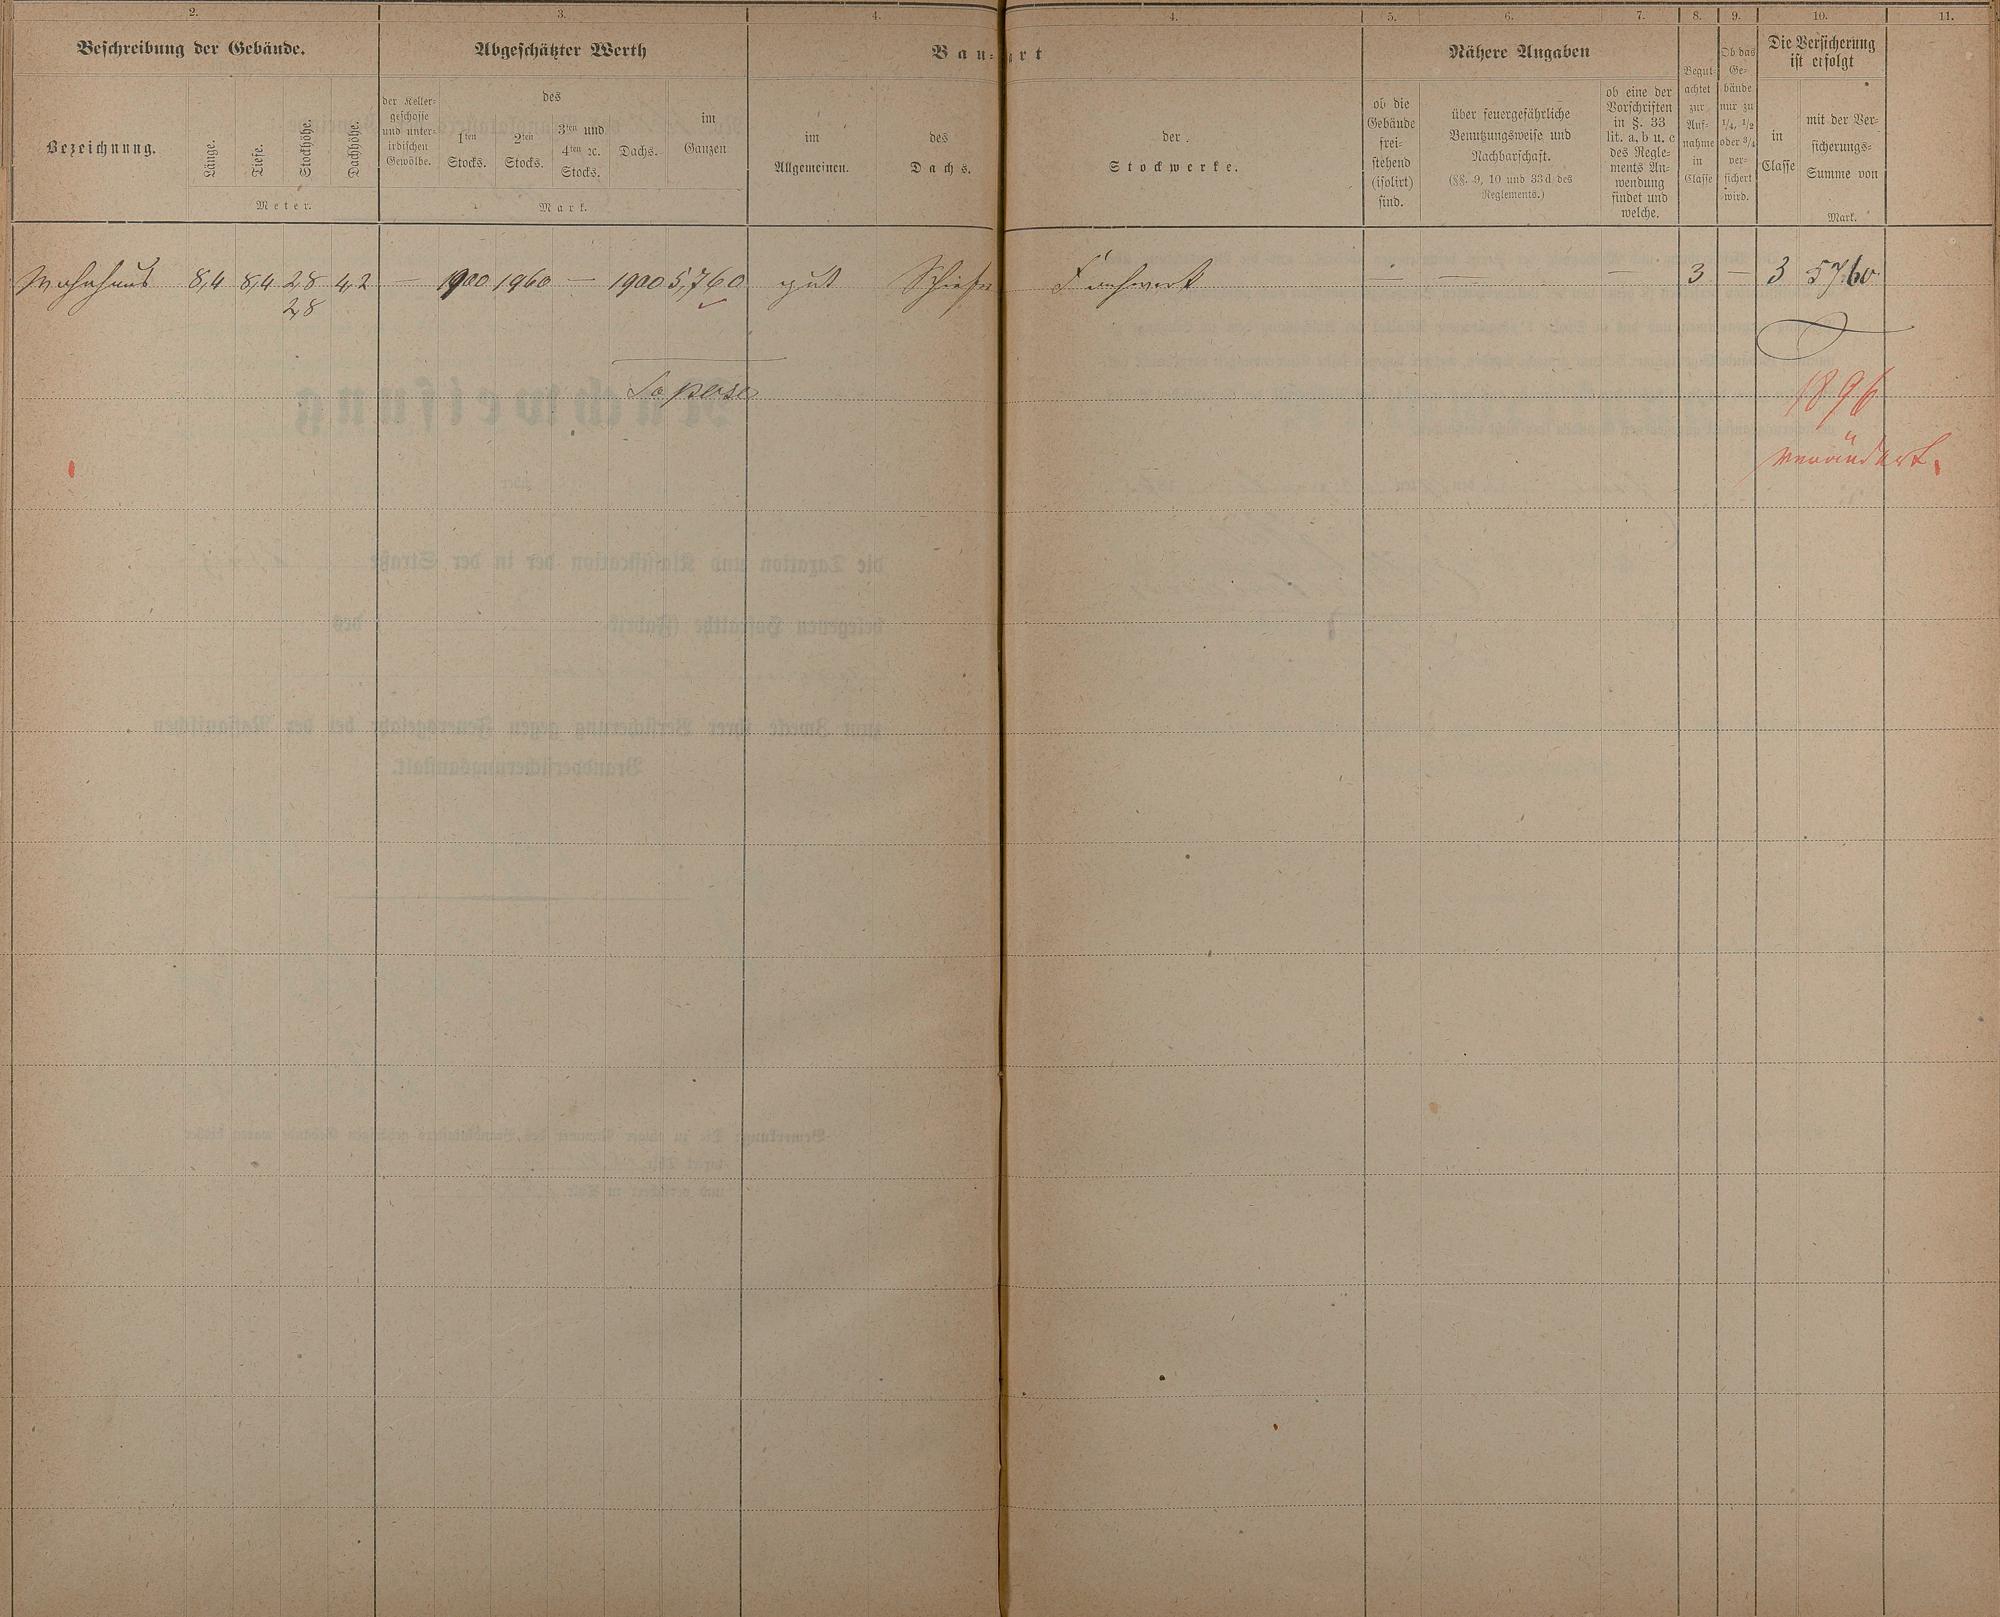 2. 3. 4. 4. 5. 6. 7. 8. 9. 10. 11.
Beschreibung der Gebäude.
Bezeichnung.
Länge.
Tiefe.
Stockhöhe.
Dachhöhe.
Meter.
Abgeschätzter Werth
der Keller-
geschosse
und unter-
irdischen
Gewölbe.
des
1ten
Stocks.
2ten
Stocks.
3ten und
4ten 2c.
Stocks.
Dachs.
im
Ganzen
Mark.
Bau-art
im
Allgemeinen.
des
Dachs.
der
Stockwerke.
Nähere Angaben
ob die
Gebäude
frei-
stehend
(isolirt)
sind.
über feuergefährliche
Benutzungsweise und
Nachbarschaft.
(§§. 9, 10 und 33d des
Reglements.)
ob eine der
Vorschriften
in §. 33
lit. a, b u. c
des Regle-
ments An-
wendung
findet und
welche.
Begut-
achtet
zur
Auf-
nahme
in
Classe
Ob das
Ge-
bäude
nur zu
1/4, 1/2
oder 3/4
ver-
sichert
wird.
Die Versicherung
ist erfolgt
in
Classe
mit der Ver-
sicherungs-
Summe von
Mark.
Wohnhaus 8,4 8,4 2,8 4,2 — 1900 1960 — 1900 5,760 gut Schiefer Fachwerk — — — 3 — 3 5760
2,8
1896
verändert.